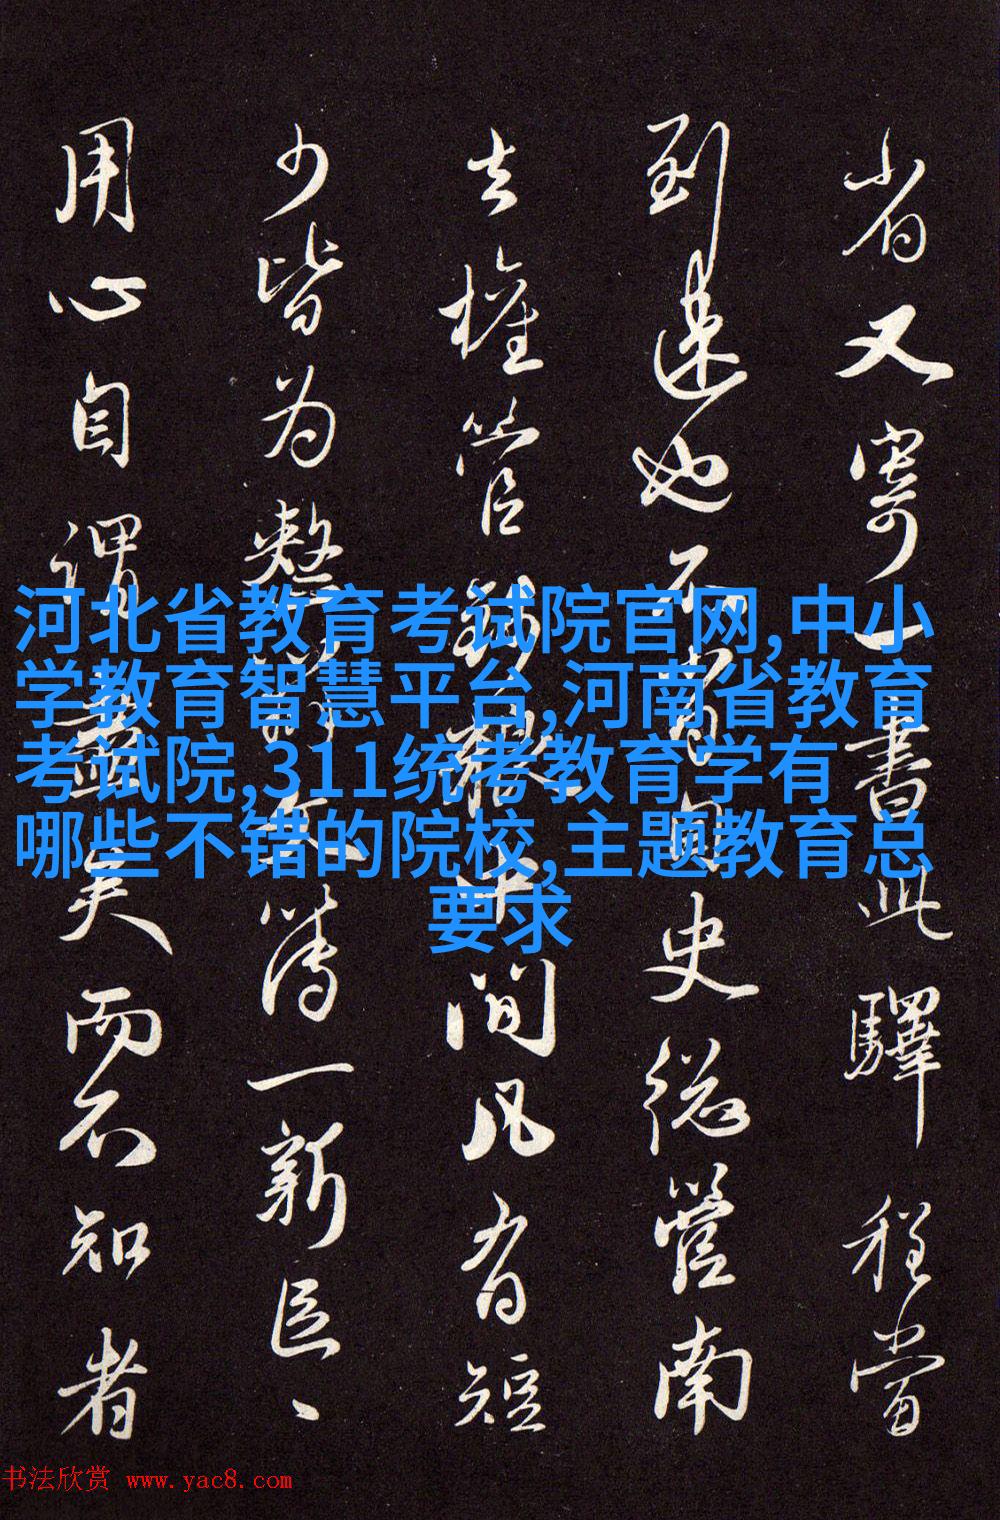 省又寄一書此驛程當
到速也不史總管南
去權管間凡有短
少皆为整文簿一新
用心自謂盡矣而不知者
河北省教育考试院官网,中小
学教育智慧平台,河南省教育
考试院,311统考教育学有
哪些不错的院校,主题教育总
要求
书法欣赏 www.yac8.com